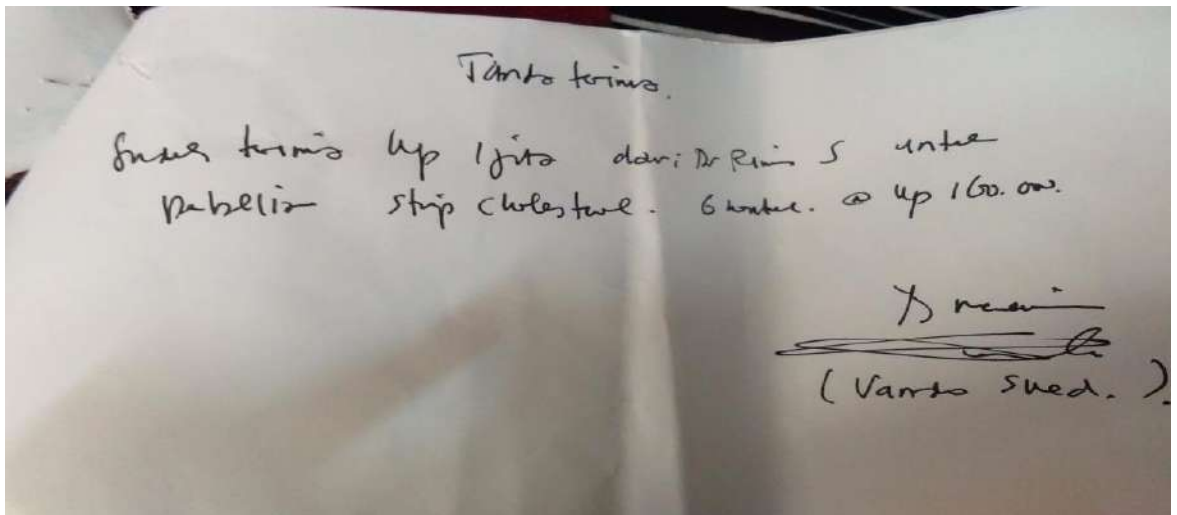 Tanda terima.
Sudah terima Rp 1 juta dari Dr Rini S untuk
pembelian strip cholesterol. 6 kotak. @ Rp 160.000.
(Vanda Sued.)